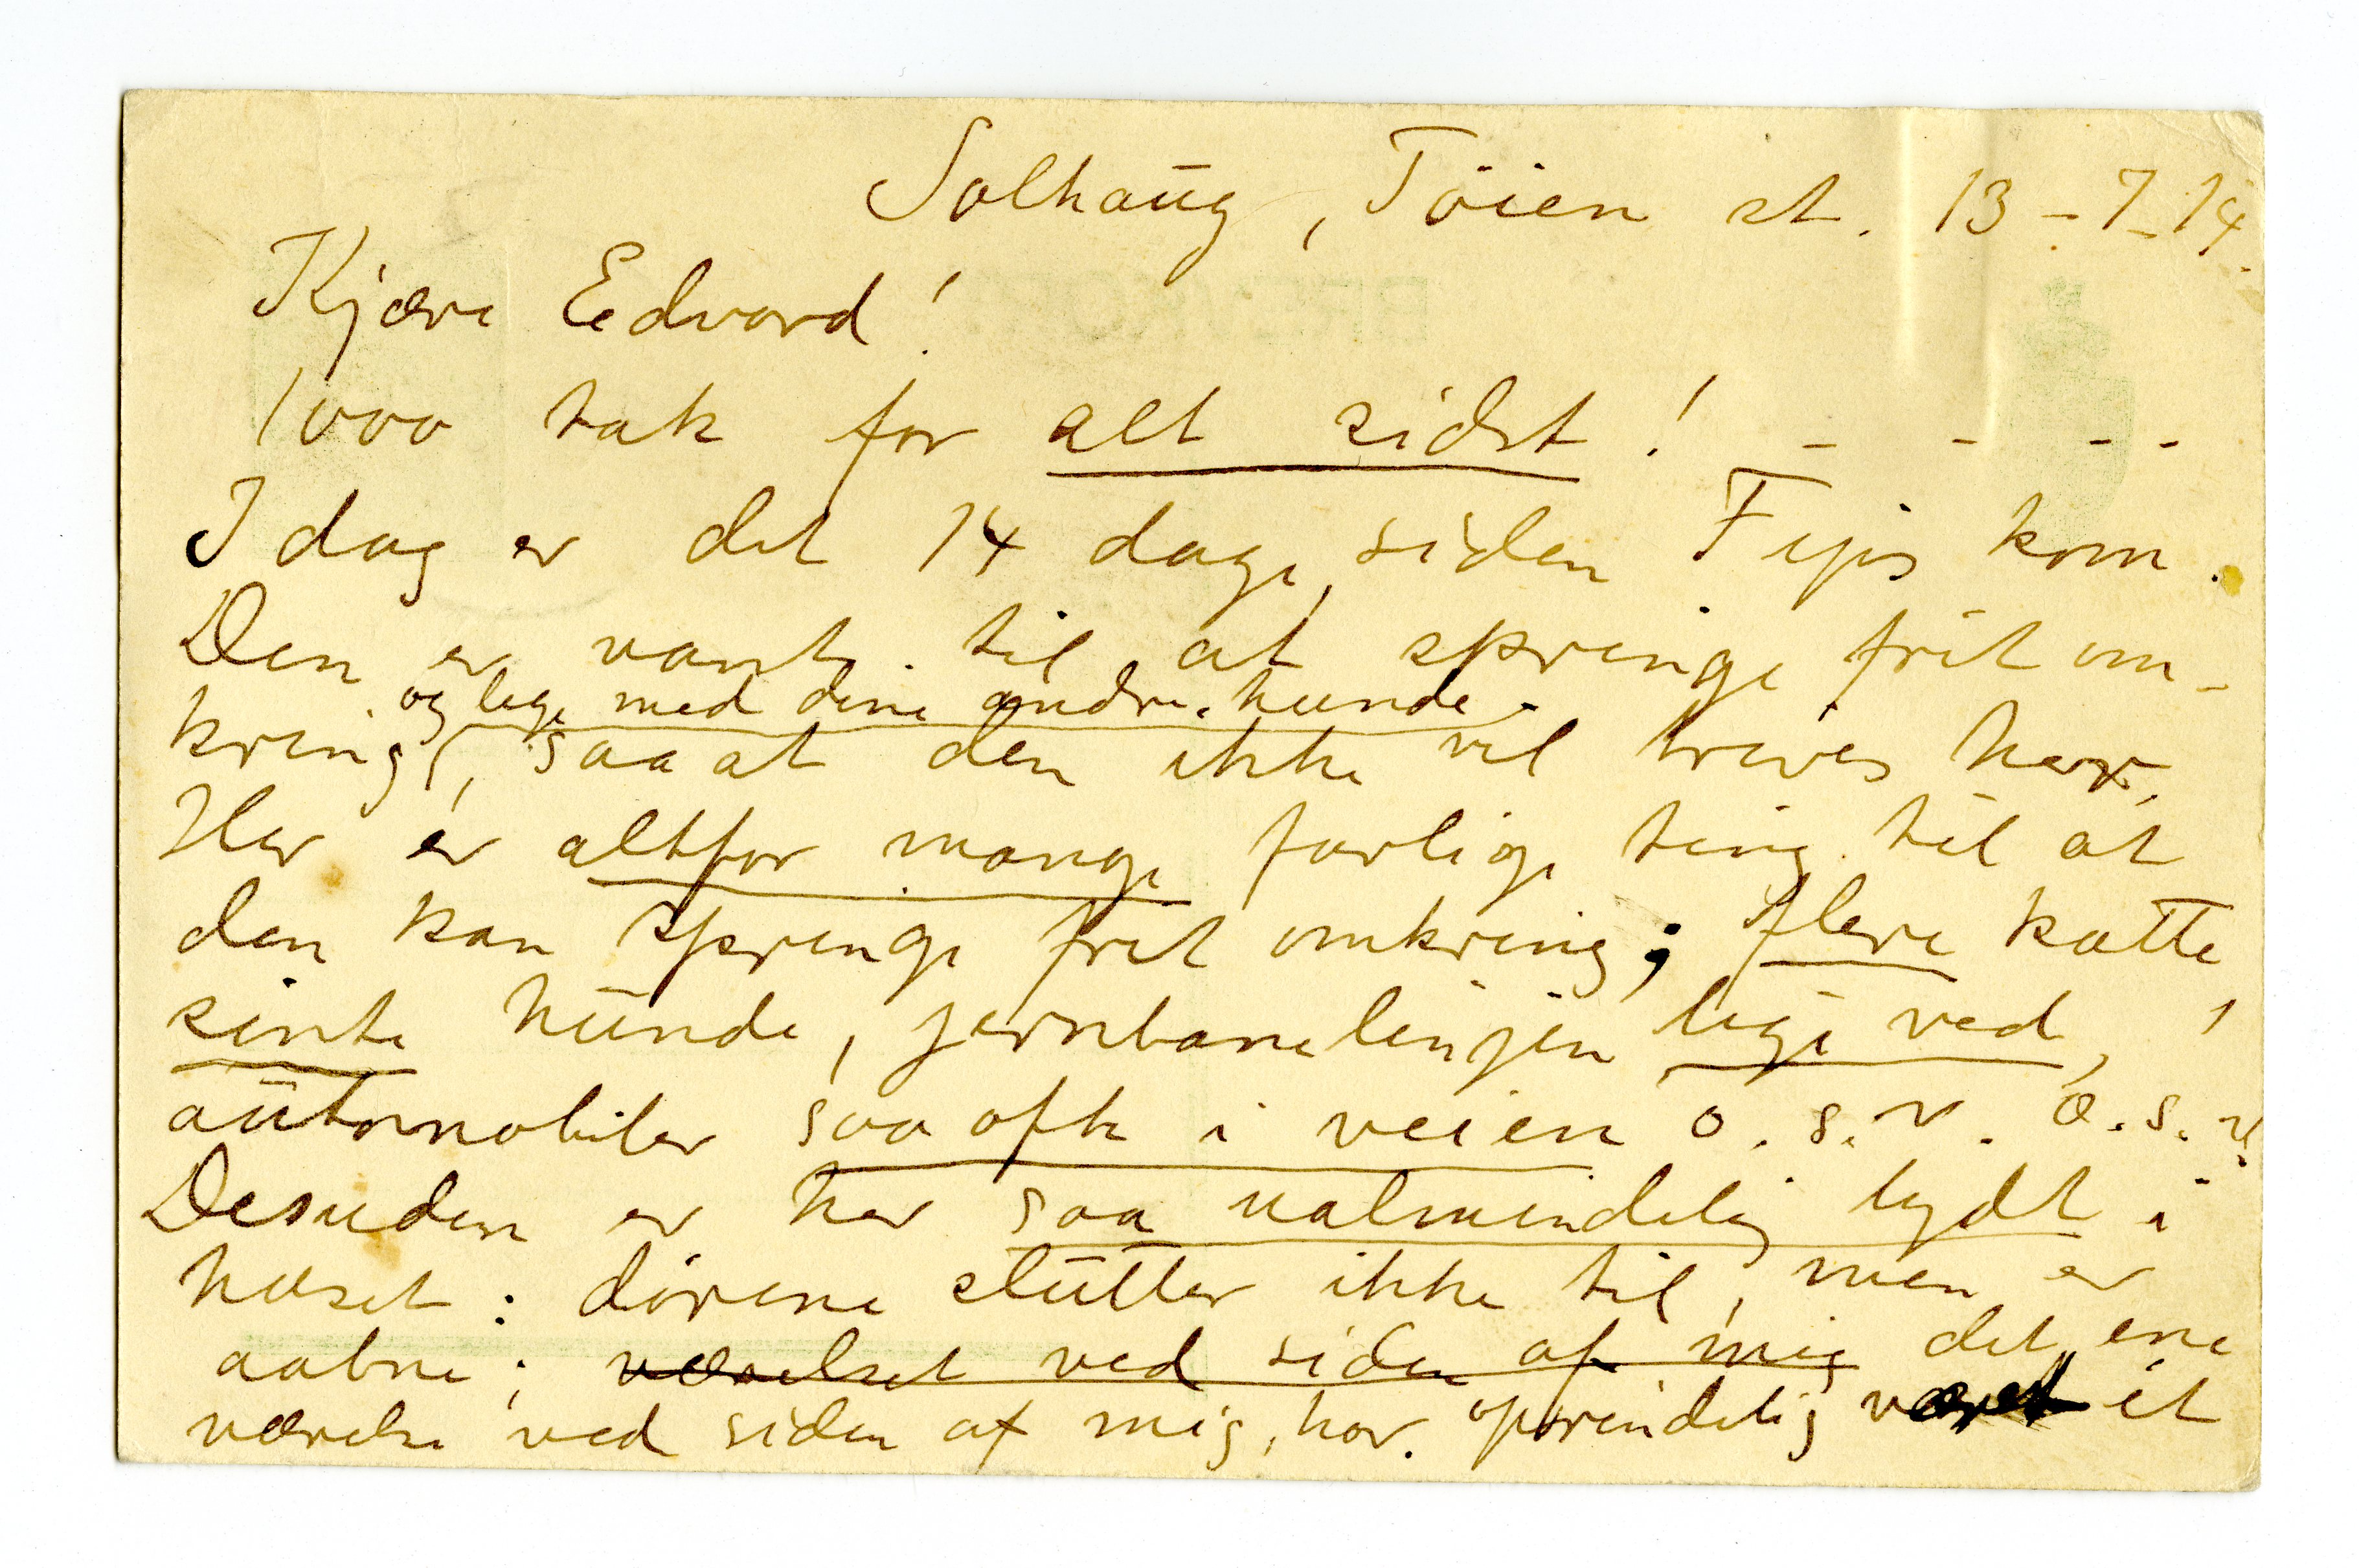 Solhaug, Töien st. 13-7-14.
Kjære Edvard!
1000 tak for alt sidst! - - - -
I dag er det 14 dage, siden Fips kom.
Den er vant til at springe frit om-
kring, og lege med dine andre hunde.
saa at den ikke vil trives her.
Her er altfor mange farlige ting til at
den kan springe frit omkring; flere katte
sinte hunde, jernbanelinjen lige ved,
automobiler saa ofte i veien o.s.v. o.s.v.
Desuden er her saa ualmindelig lydt i
huset: dörene slutter ikke til, men er
aabne; værelset ved siden af mig det ene
værelse ved siden af mig, har oprindelig været et